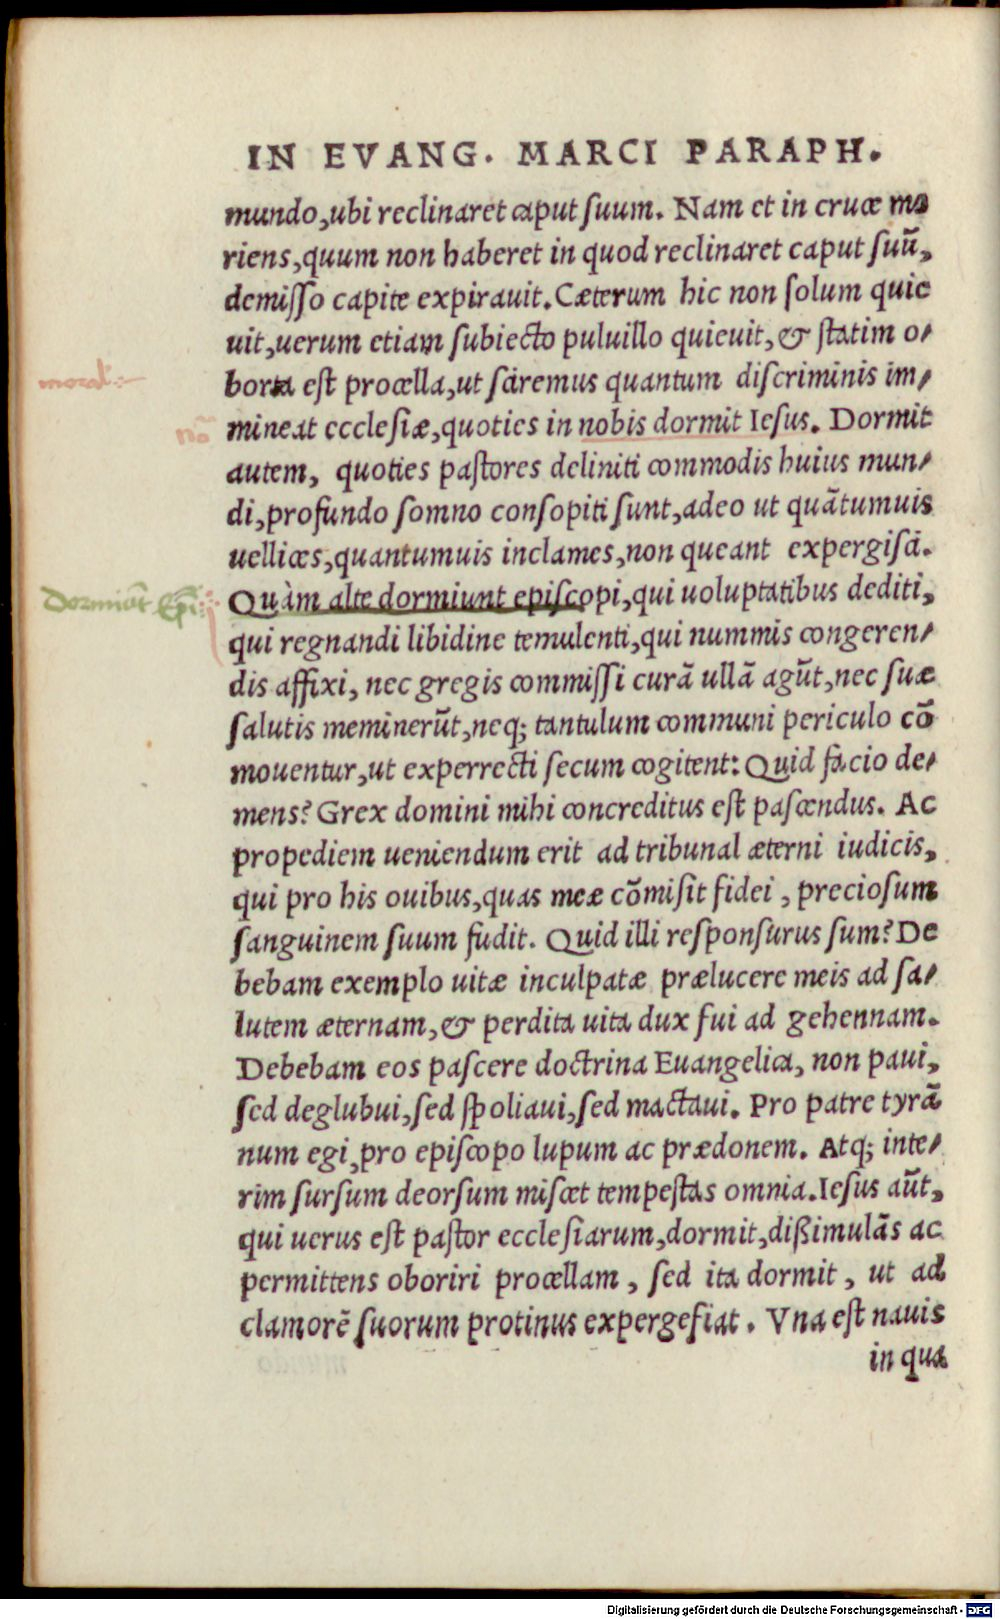 IN EVANG. MARCI PARAPH.
mundo,ubi reclinaret caput suum. Nam et in cruce mo
riens,quum non haberet in quod reclinaret caput suū,
demisso capite expirauit.Cæterum hic non solum quie
uit,uerum etiam subiecto puluillo quieuit,& statim o-
borta est procella,ut sciremus quantum discriminis im-
moral:
mineat ecclesiæ,quoties in nobis dormit Iesus. Dormit
autem, quoties pastores deliniti commodis huius mun-
di,profundo somno consopiti sunt,adeo ut quãtumuis
uellices,quantumuis inclames,non queant expergisci.
Dormiūt Epi
Quàm alte dormiunt episcopi,qui uoluptatibus dediti,
qui regnandi libidine temulenti,qui nummis congeren-
dis affixi, nec gregis commissi curã ullã agūt,nec suæ
salutis meminerūt,neq; tantulum communi periculo cõ
mouentur,ut experrecti secum cogitent: Quid facio de-
mens? Grex domini mihi concreditus est pascendus. Ac
propediem ueniendum erit ad tribunal æterni iudicis,
qui pro his ouibus,quas meæ cõmisit fidei, preciosum
sanguinem suum fudit. Quid illi responsurus sum? De
bebam exemplo uitæ inculpatæ prælucere meis ad sa-
lutem æternam,& perdita uita dux fui ad gehennam.
Debebam eos pascere doctrina Euangelica, non paui,
sed deglubui,sed spoliaui,sed mactaui. Pro patre tyrã
num egi,pro episcopo lupum ac prædonem. Atq; inte-
rim sursum deorsum miscet tempestas omnia.Iesus aūt,
qui uerus est pastor ecclesiarum,dormit,dißimulãs ac
permittens oboriri procellam, sed ita dormit, ut ad
clamorẽ suorum protinus expergefiat. Vna est nauis
in qua
Digitalisierung gefördert durch die Deutsche Forschungsgemeinschaft - DFG